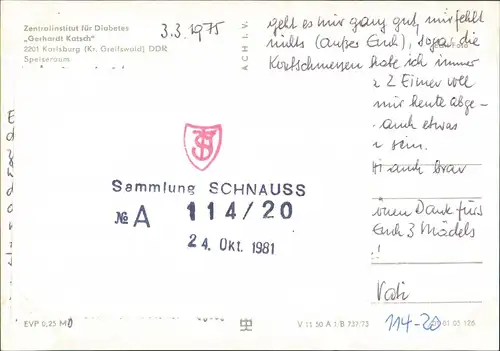 Zentralinstitut für Diabetes
„Gerhardt Katsch"
2201 Karlsburg (Kr. Greifswald) DDR
Speiseraum
3.3.1975
ACH I. V.
geht es mir ganz gut, mir fehlt
nichts (außer Euch), sogar die
habe ich immer
2 Eimer voll
mir heute abge-
auch etwas
sein.
auch brav
Dank fürs
Euch 3 Mädels
!
Vati
Sammlung SCHNAUSS
№ A 114/20
24. Okt. 1981
EVP 0,25 M
V 11 50 A 1 B 737/75
01 05 126
114-20